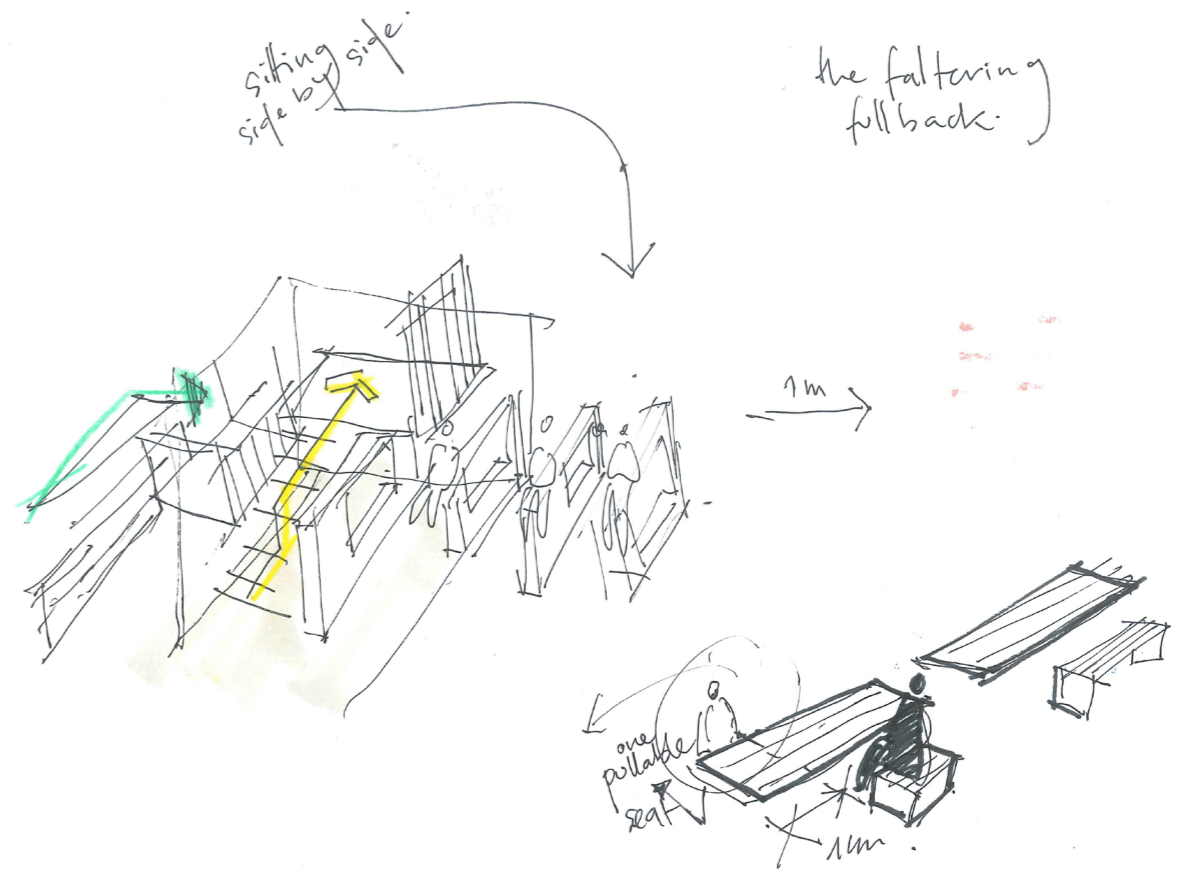 sitting
side by side.
the faltering
fullback.
1m
one
pullable
seat
1m